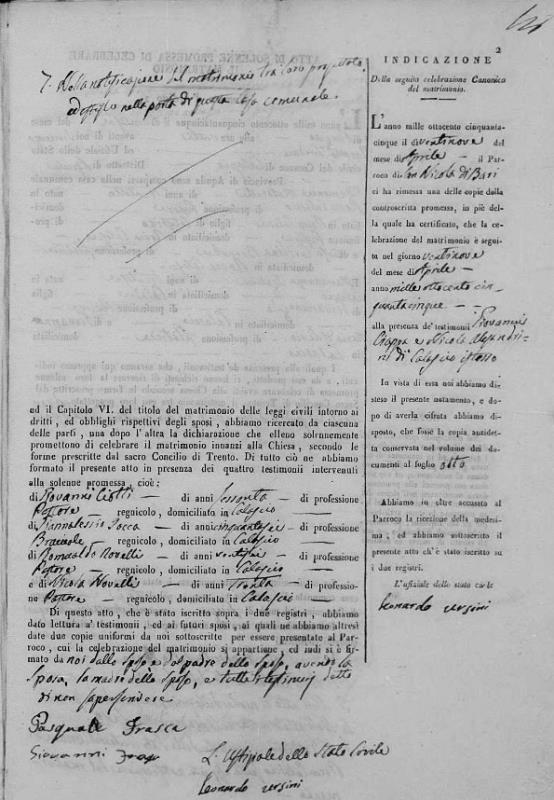 2
7. Della notificazione del matrimonio tra loro progettato
ed affisso nella porta di questa Casa comunale.
ed il Capitolo VI. del titolo del matrimonio delle leggi civili intorno ai
dritti, ed obblighi rispettivi degli sposi, abbiamo ricercato da ciascuna
delle parti, una dopo l'altra la dichiarazione che elleno solennemente
promettono di celebrare il matrimonio innanzi alla Chiesa, secondo le
forme prescritte dal sacro Concilio di Trento. Di tutto ciò ne abbiamo
formato il presente atto in presenza dei quattro testimonii intervenuti
alla solenne promessa, cioè:
di Giovanni Ciotti — di anni sessanta — di professione
Pastore — regnicolo, domiciliato in Calascio —
di Mannalessio — di anni cinquantasei — di professione
Bracciale — regnicolo, domiciliato in Calascio —
di Romualdo Novelli — di anni ventisei — di professione
Pastore — regnicolo, domiciliato in Calascio —
e di Nicola Novelli — di anni Trenta — di professio-
ne Pastore — regnicolo, domiciliato in Calascio —
Di questo atto, che è stato iscritto sopra i due registri, abbiamo
dato lettura a' testimonii, ed ai futuri sposi, ai quali ne abbiamo altresì
date due copie uniformi da noi sottoscritte per essere presentate al Par-
roco, cui la celebrazione del matrimonio si appartiene, ed indi si è fir-
mato da noi dallo sposo e dal padre dello sposo, avendo la
sposa, la madre dello sposo, e tutti i testimonj detto
di non saper scrivere
Pasquale Frasca
Giovanni
L'Uffiziale dello Stato Civile
Leonardo Ursini
INDICAZIONE
Della seguita celebrazione Canonica
del matrimonio.
L'anno mille ottocento cinquanta-
cinque il dì ventinove del
mese di Aprile — il Par-
roco di San Nicola di Bari
ci ha rimessa una delle copie della
controscritta promessa, in piè del-
la quale ha certificato, che la ce-
lebrazione del matrimonio è segui-
ta nel giorno ventinove
del mese di Aprile —
anno mille ottocento cin-
quantacinque — —
alla presenza de' testimonii Giovanni
Ciappa e Nicola Alesandri-
ni di Calascio istesso
In vista di essa noi abbiamo di-
steso il presente notamento, e do-
po di averla cifrata abbiamo di-
sposto, che fosse la copia antidet-
ta conservata nel volume dei do-
cumenti al foglio otto
Abbiamo in oltre accusato al
Parroco la ricezione della medesi-
ma, ed abbiamo sottoscritto il
presente atto ch'è stato iscritto su
i due registri.
L'uffiziale dello stato civile
Leonardo Ursini